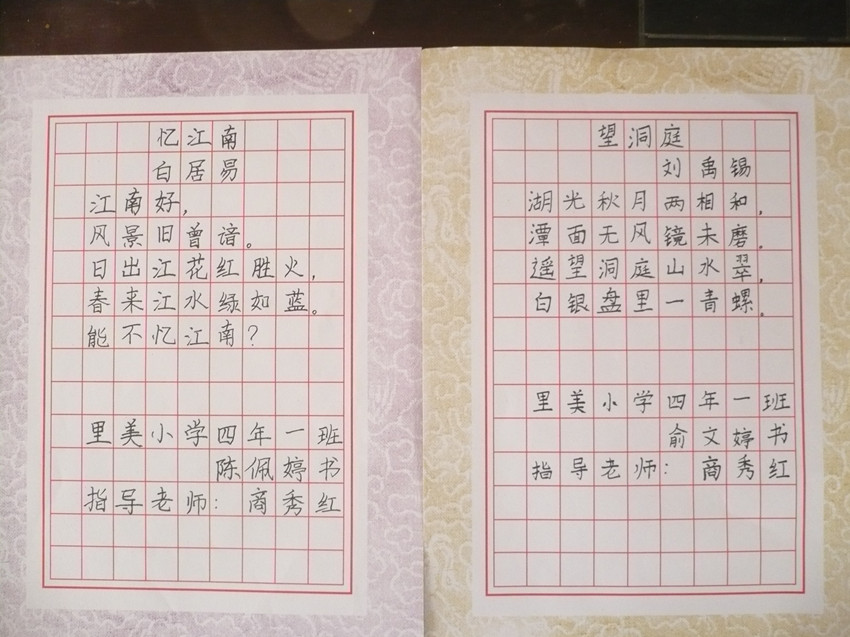 忆江南
白居易
江南好,
风景旧曾谙。
日出江花红胜火,
春来江水绿如蓝。
能不忆江南?
里美小学四年一班
陈佩婷书
指导老师: 商秀红
望洞庭
刘禹锡
湖光秋月两相和,
潭面无风镜未磨。
遥望洞庭山水翠,
白银盘里一青螺。
里美小学四年一班
俞文婷书
指导老师: 商秀红